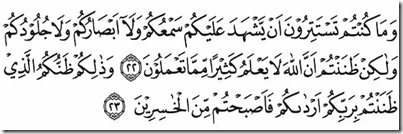 وَمَا كُنتُمْ تَسْتَتِرُونَ أَن يَشْهَدَ عَلَيْكُمْ سَمْعُكُمْ وَلَا أَبْصَارُكُمْ وَلَا جُلُودُكُمْ
وَلَٰكِن ظَنَنتُمْ أَنَّ اللَّهَ لَا يَعْلَمُ كَثِيرًا مِّمَّا تَعْمَلُونَ ٢٢ وَذَٰلِكُمْ ظَنُّكُمُ الَّذِي
ظَنَنتُم بِرَبِّكُمْ أَرْدَاكُمْ فَأَصْبَحْتُم مِّنَ الْخَاسِرِينَ ٢٣